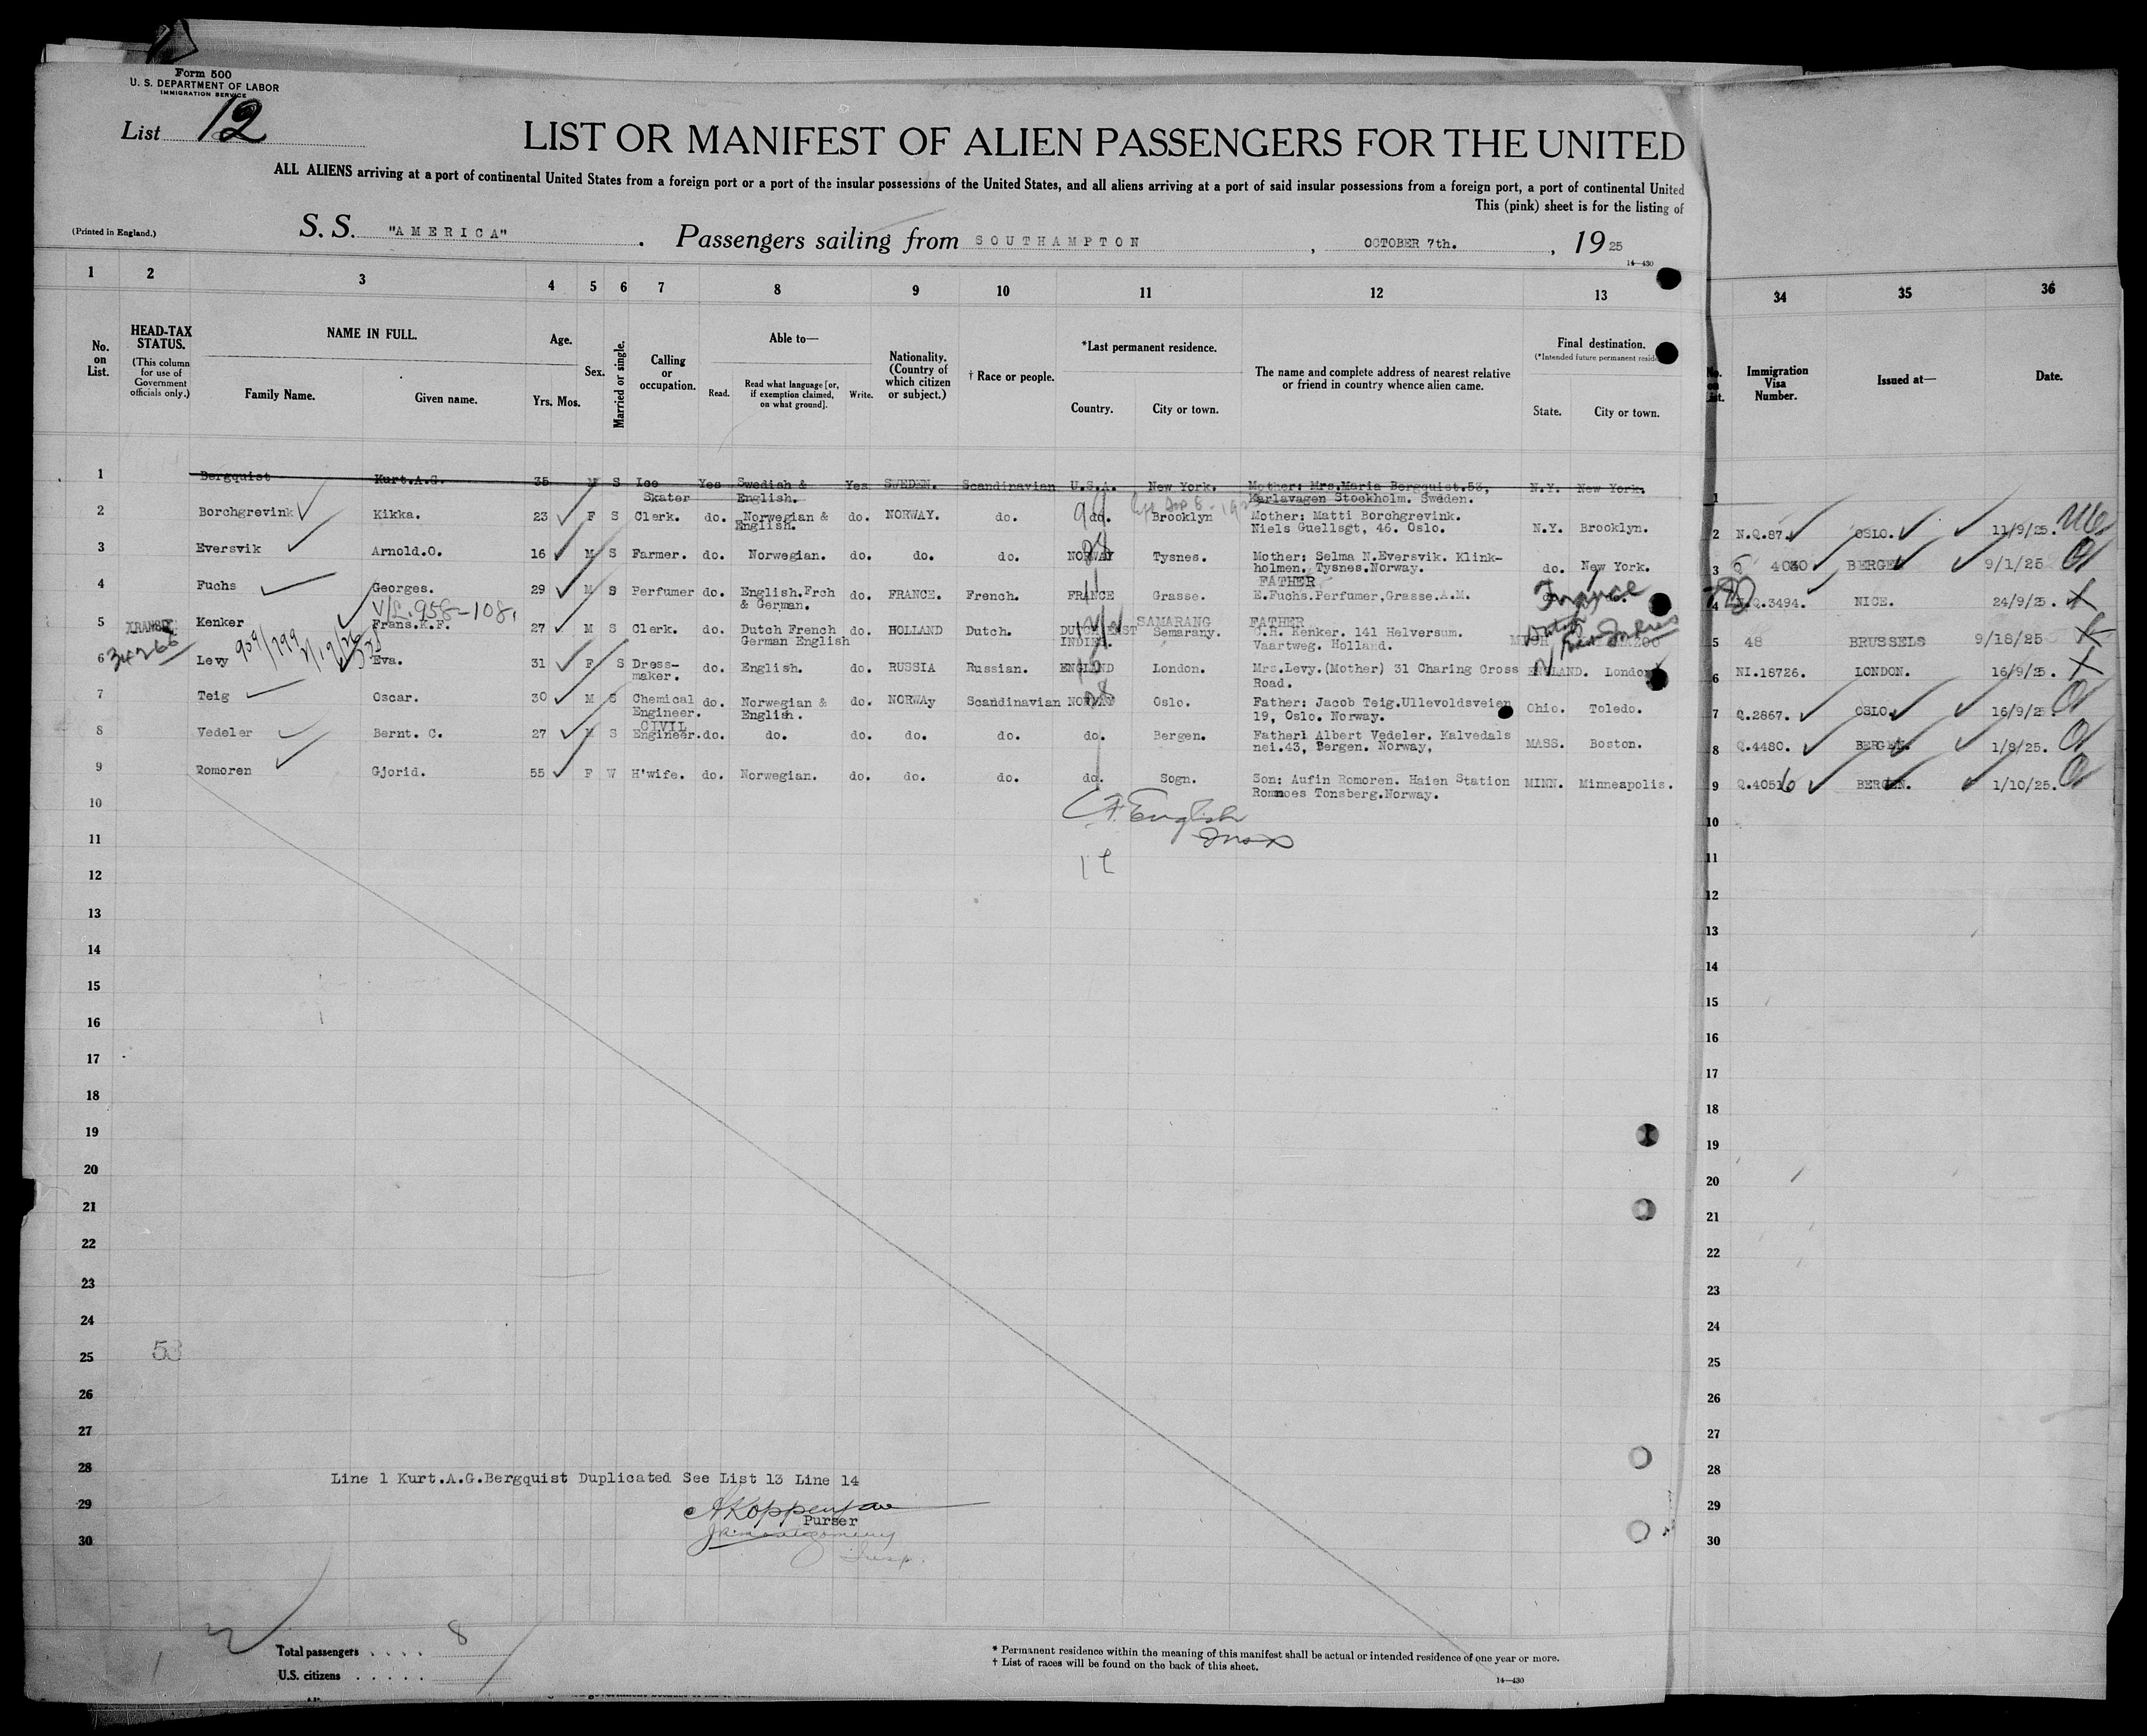 Form 500
U. S. DEPARTMENT OF LABOR
IMMIGRATION SERVICE
List 12
LIST OR MANIFEST OF ALIEN PASSENGERS FOR THE UNITED
ALL ALIENS arriving at a port of continental United States from a foreign port or a port of the insular possessions of the United States, and all aliens arriving at a port of said insular possessions from a foreign port, a port of continental United
This (pink) sheet is for the listing of
(Printed in England.) S. S. "AMERICA" . Passengers sailing from SOUTHAMPTON , OCTOBER 7th. , 19 25
14—430
1 2 3 4 5 6 7 8 9 10 11 12 13 34 35 36
No. on List.
HEAD-TAX STATUS.
(This column for use of Government officials only.)
NAME IN FULL.
Family Name. Given name.
Age.
Yrs. Mos.
Sex.
Married or single.
Calling or occupation.
Able to—
Read. Read what language [or, if exemption claimed, on what ground]. Write.
Nationality. (Country of which citizen or subject.)
† Race or people.
*Last permanent residence.
Country. City or town.
The name and complete address of nearest relative or friend in country whence alien came.
Final destination.
(*Intended future permanent
State. City or town.
Immigration Visa Number.
Issued at—
Date.
1 Bergquist Kurt.A.G. 35 M S Ice Skater Yes Swedish & English. Yes SWEDEN. Scandinavian U.S.A. New York. Mother: Mrs.Maria Bergquist.53, Karlavagen Stockholm. Sweden. N.Y. New York. 1
2 Borchgrevink Kikka. 23 F S Clerk. do. Norwegian & English. do. NORWAY. do. do. Brooklyn Mother: Matti Borchgrevink. Niels Guellsgt, 46. Oslo. N.Y. Brooklyn. 2 N.Q.87. OSLO. 11/9/25.
3 Eversvik Arnold.O. 16 M S Farmer. do. Norwegian. do. do. do. NORWAY Tysnes. Mother: Selma N.Eversvik. Klink-holmen. Tysnes.Norway. do. New York. 3 BERGEN 9/1/25
4 Fuchs Georges. 29 M S Perfumer do. English.Frch & German. do. FRANCE. French. FRANCE Grasse. FATHER E.Fuchs.Perfumer,Grasse.A.M. France 4 Q.3494. NICE. 24/9/25.
V/L.958-108.
5 TRANSIT Kenker Frans.K.F. 27 M S Clerk. do. Dutch French German English do. HOLLAND Dutch. DUTCH EAST INDIES. SAMARANG Semarany. FATHER C.H. Kenker. 141 Helversum. Vaartweg. Holland. 5 48 BRUSSELS 9/18/25
34266
6 Levy Eva. 31 F S Dress-maker. do. English. do. RUSSIA Russian. ENGLAND London. Mrs.Levy.(Mother) 31 Charing Cross Road. ENGLAND. London 6 NI.18726. LONDON. 16/9/25.
7 Teig Oscar. 30 M S Chemical Engineer. do. Norwegian & English. do. NORWAy Scandinavian NORWAY Oslo. Father: Jacob Teig.Ullevoldsveien 19, Oslo. Norway. Ohio. Toledo. 7 Q.2867. OSLO. 16/9/25.
8 Vedeler Bernt. C. 27 M S CIVIL Engineer. do. do. do. do. do. do. Bergen. Father: Albert Vedeler. Kalvedals nei.43, Bergen. Norway, MASS. Boston. 8 Q.4480. BERGEN. 1/8/25.
9 Romoren Gjorid. 55 F W H'wife. do. Norwegian. do. do. do. do. Sogn. Son: Aufin Romoren. Haien Station Romnoes Tonsberg.Norway. MINN. Minneapolis. 9 Q.40516 BERGEN. 1/10/25.
10 English 10
11 11
12 12
13 13
14 14
15 15
16 16
17 17
18 18
19 19
20 20
21 21
22 22
23 23
24 24
25 53 25
26 26
27 27
28 28
Line 1 Kurt.A.G.Bergquist Duplicated See List 13 Line 14
29 29
Purser
30 30
Total passengers . . . . 8
U.S. citizens . . . . .
* Permanent residence within the meaning of this manifest shall be actual or intended residence of one year or more.
† List of races will be found on the back of this sheet.
14—430